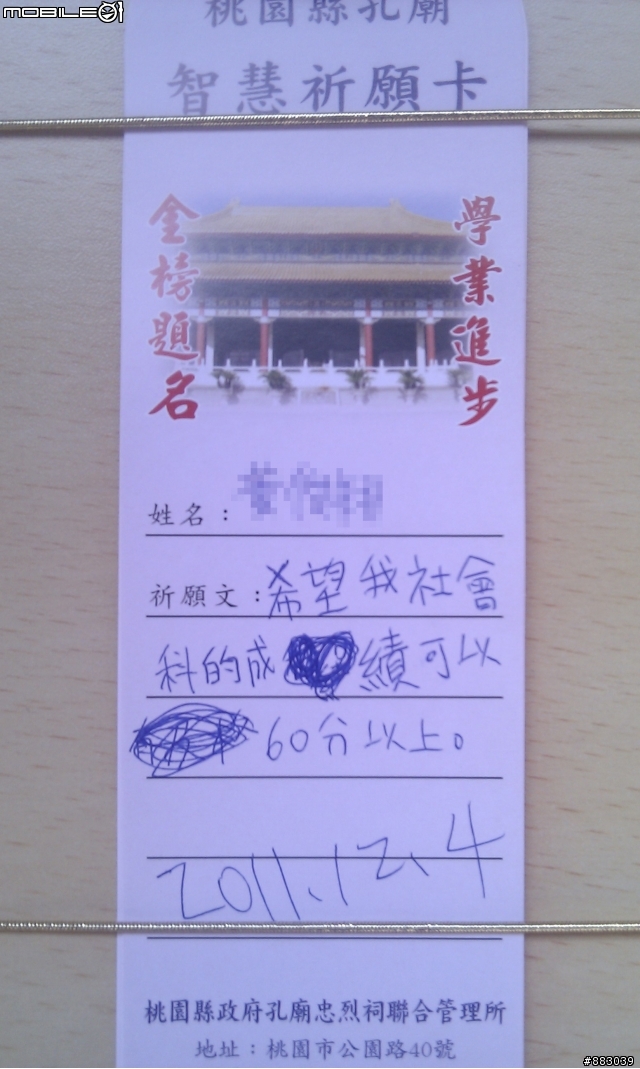 MOBILE01
桃園縣孔廟
智慧祈願卡
學業進步
金榜題名
姓名：
祈願文：希望我社會
科的成績可以
60分以上。
2011.12.4
桃園縣政府孔廟忠烈祠聯合管理所
地址：桃園市公園路40號
#883039